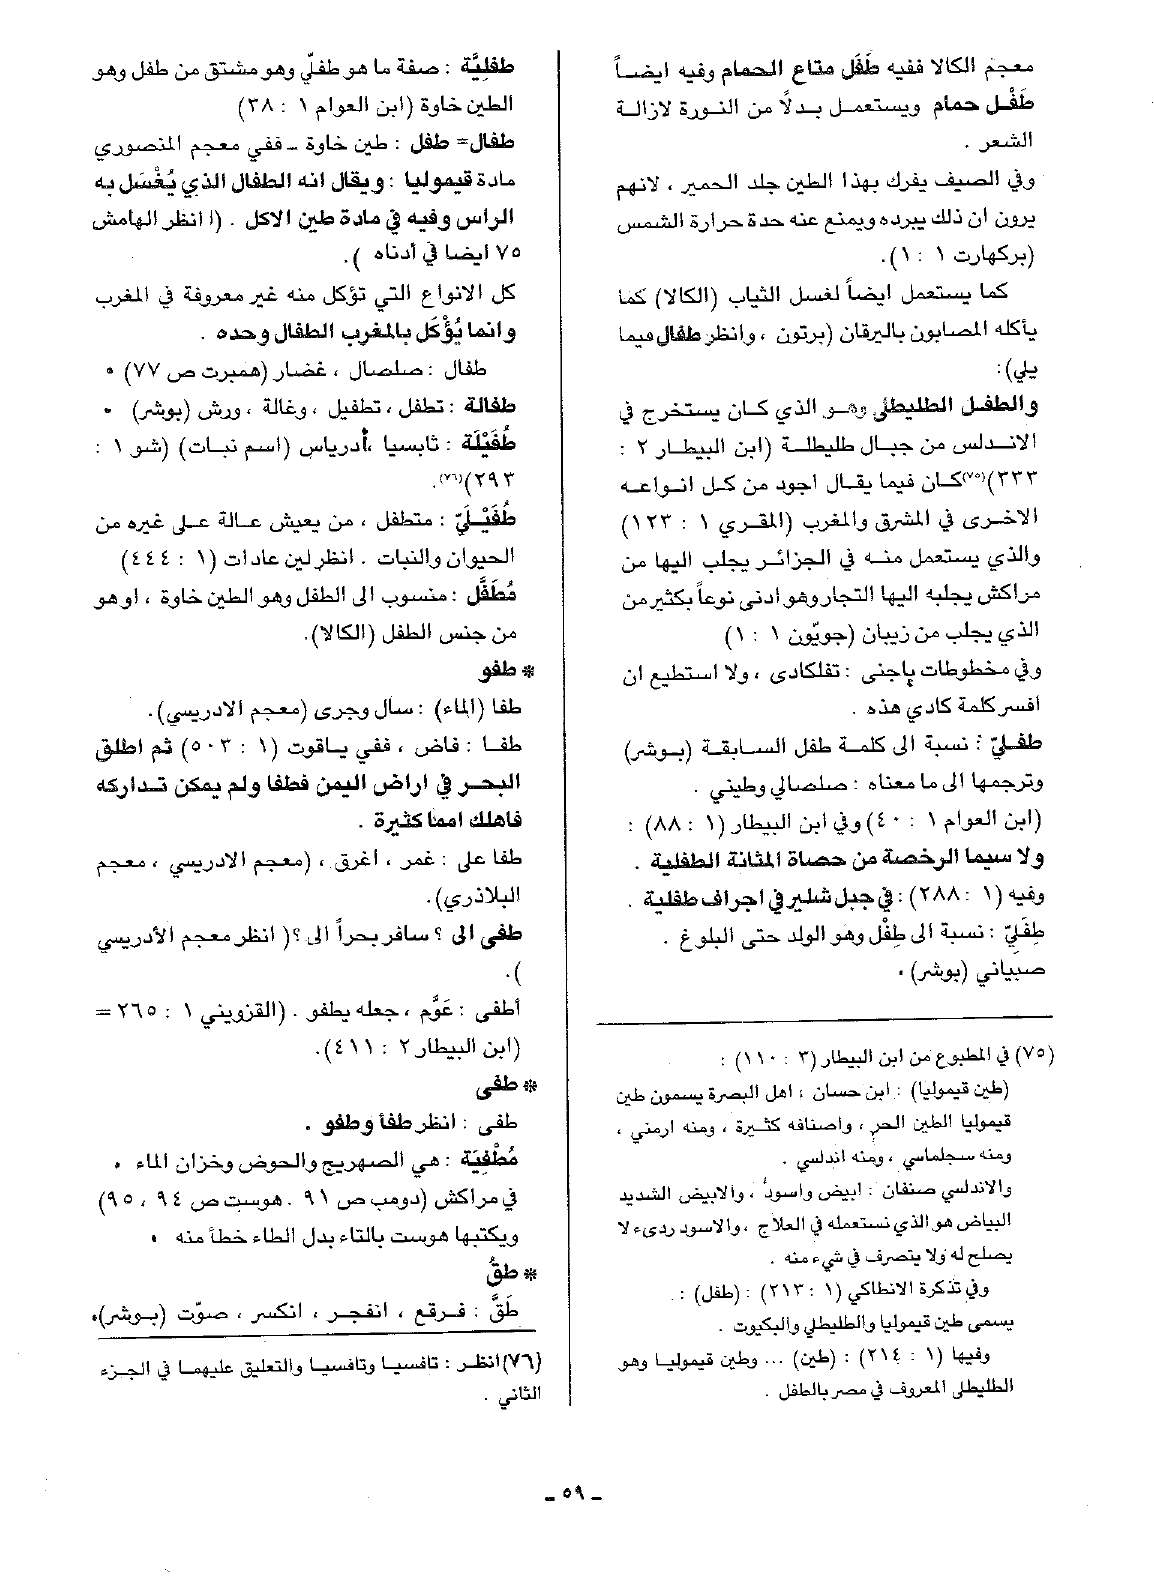 معجم الكالا ففيه طَفَل متاع الحمام وفيه ايضاً
طَفْل حمام ويستعمل بدلاً من النورة لازالة
الشعر .
وفي الصيف يفرك بهذا الطين جلد الحمير ، لانهم
يرون ان ذلك يبرده ويمنع عنه حدة حرارة الشمس
(بركهارت ١ : ١).
كما يستعمل ايضاً لغسل الثياب (الكالا) كما
يأكله المصابون باليرقان (برتون ، وانظر طفال فيما
يلي):
والطفل الطليطلي وهو الذي كان يستخرج في
الاندلس من جبال طليطلة (ابن البيطار ٢ :
٣٣٣)(٧٥) كان فيما يقال اجود من كل انواعه
الاخرى في المشرق والمغرب (المقري ١ : ١٢٣)
والذي يستعمل منه في الجزائر يجلب اليها من
مراكش يجلبه اليها التجار وهو ادنى نوعاً بكثير من
الذي يجلب من زيبان (جويّون ١ : ١)
وفي مخطوطات پاجنى : تفلكادى ، ولا استطيع ان
أفسر كلمة كادي هذه .
طفليّ : نسبة الى كلمة طفل السابقة (بوشر)
وترجمها الى ما معناه : صلصالي وطيني .
(ابن العوام ١ : ٤٠) وفي ابن البيطار (١ : ٨٨) :
ولا سيما الرخصة من حصاة المثانة الطفلية .
وفيه (١ : ٢٨٨) : في جبل شلير في اجراف طفلية .
طِفَليّ : نسبة الى طِفْل وهو الولد حتى البلوغ .
صبياني (بوشر) .
(٧٥) في المطبوع من ابن البيطار (٣ : ١١٠) :
(طين قيموليا) : ابن حسان ، اهل البصرة يسمون طين
قيموليا الطين الحر ، واصنافه كثيرة ، ومنه ارمني ،
ومنه سجلماسي ، ومنه اندلسي .
والاندلسي صنفان : ابيض واسود ، والابيض الشديد
البياض هو الذي نستعمله في العلاج ، والاسود رديء لا
يصلح له ولا يتصرف في شيء منه .
وفي تذكرة الانطاكي (١ : ٢١٣) : (طفل) :
يسمى طين قيموليا والطليطلي والبكيوت .
وفيها (١ : ٢١٤) : (طين) ... وطين قيموليا وهو
الطليطلي المعروف في مصر بالطفل .
طفليَّة : صفة ما هو طفليّ وهو مشتق من طفل وهو
الطين خاوة (ابن العوام ١ : ٣٨)
طفال= طفل : طين خاوة - ففي معجم المنصوري
مادة قيموليا : ويقال انه الطفال الذي يُغْسَل به
الراس وفيه في مادة طين الاكل . (ا انظر الهامش
٧٥ ايضا في أدناه ).
كل الانواع التي تؤكل منه غير معروفة في المغرب
وانما يُؤْكَل بالمغرب الطفال وحده .
طفال : صلصال ، غضار (همبرت ص ٧٧) .
طفالة : تطفل ، تطفيل ، وغالة ، ورش (بوشر) .
طُفَيْلَة : ثابسيا ،أدرياس (اسم نبات) (شو ١ :
٢٩٣)(٧٦).
طُفَيْلَيّ : متطفل ، من يعيش عالة على غيره من
الحيوان والنبات . انظر لين عادات (١ : ٤٤٤)
مُطَفَّل : منسوب الى الطفل وهو الطين خاوة ، او هو
من جنس الطفل (الكالا).
* طفو
طفا (الماء) : سال وجرى (معجم الادريسي).
طفا : فاض ، ففي ياقوت (١ : ٥٠٣) ثم اطلق
البحر في اراض اليمن فطفا ولم يمكن تداركه
فاهلك امما كثيرة .
طفا على : غمر ، أغرق ، (معجم الادريسي ، معجم
البلاذري).
طفى الى ؟ سافر بحراً الى ؟( انظر معجم الأدريسي
).
أطفى : عَوَّم ، جعله يطفو . (القزويني ١ : ٢٦٥ =
(ابن البيطار ٢ : ٤١١).
* طفى
طفى : انظر طفأ وطفو .
مُطْفيَة : هي الصهريج والحوض وخزان الماء .
في مراكش (دومب ص ٩١ . هوست ص ٩٤ ، ٩٥)
ويكتبها هوست بالتاء بدل الطاء خطأ منه .
* طقّ
طَقَّ : فرقع ، انفجر ، انكسر ، صوّت (بوشر).
(٧٦) انظر : تافسيا وثافسيا والتعليق عليهما في الجزء
الثاني .
ـ ٥٩ ـ